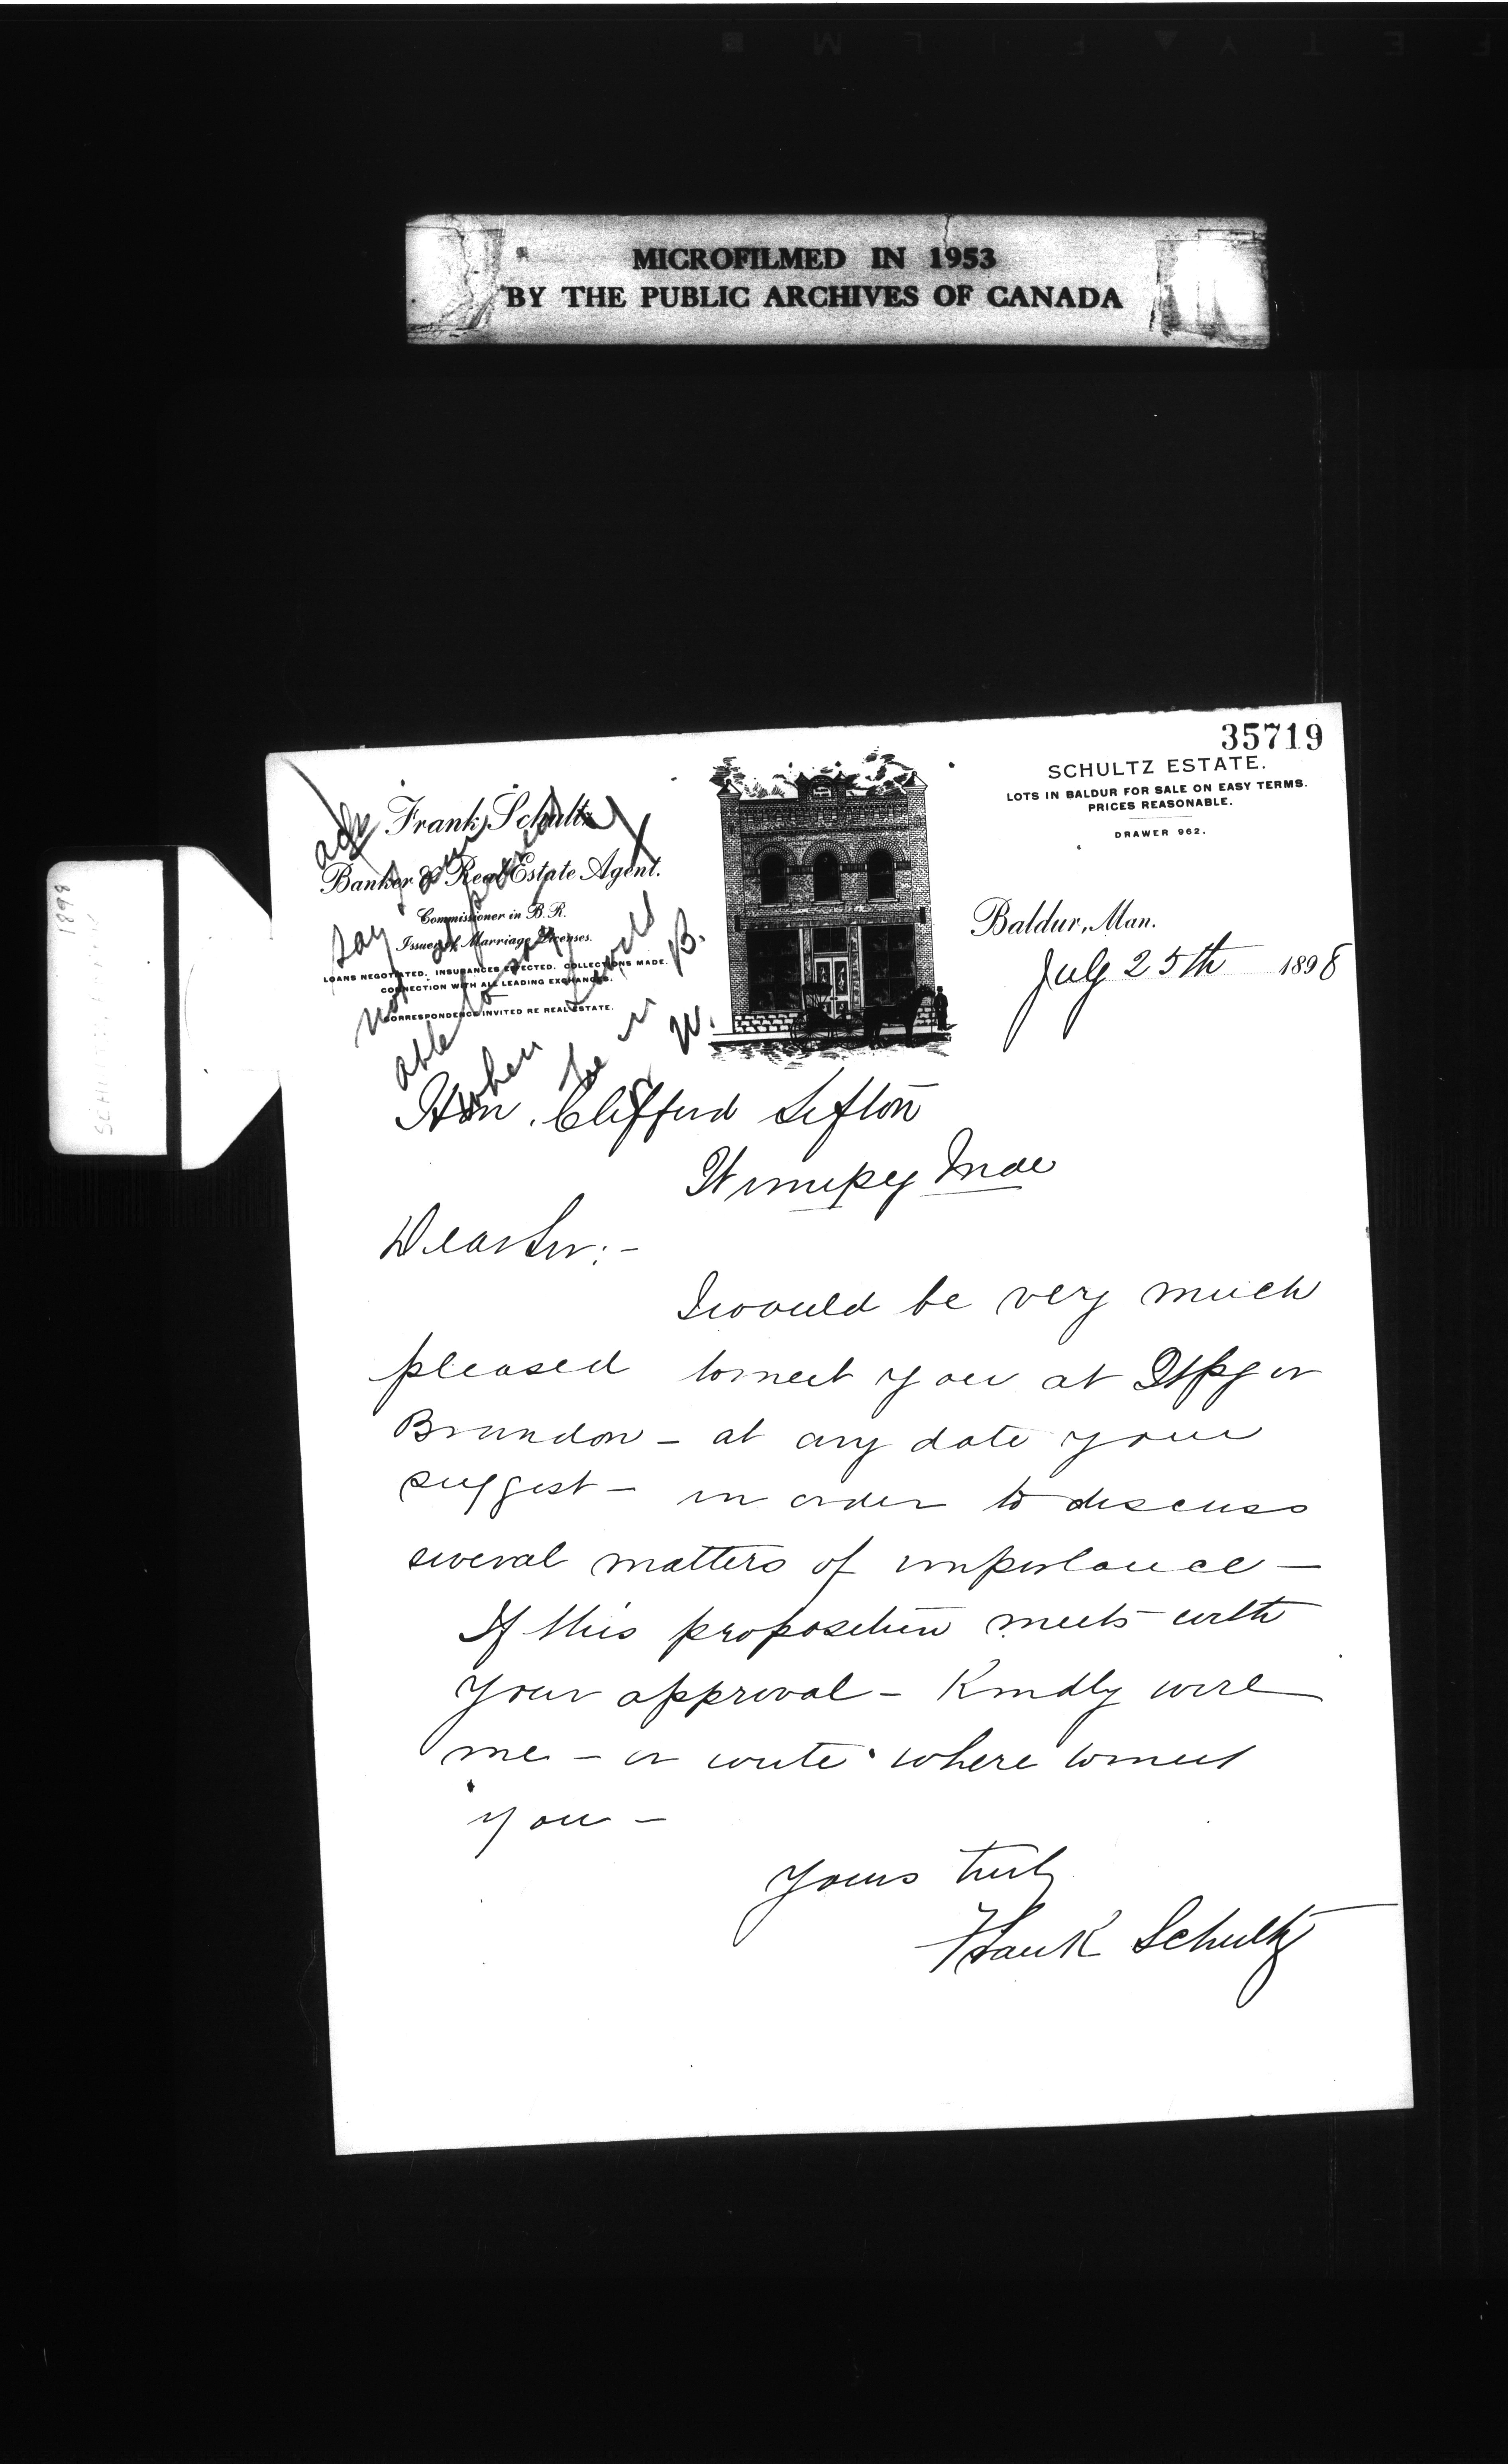 MICROFILMED IN 1953
BY THE PUBLIC ARCHIVES OF CANADA
1898
35719
SCHULTZ ESTATE.
LOTS IN BALDUR FOR SALE ON EASY TERMS.
PRICES REASONABLE.
DRAWER 962.
Frank Schultz
Banker & Real Estate Agent.
Commissioner in B.R.
Issuer of Marriage Licenses.
LOANS NEGOTIATED. INSURANCES EFFECTED. COLLECTIONS MADE.
CONNECTION WITH ALL LEADING EXCHANGES.
CORRESPONDENCE INVITED RE REAL ESTATE.
ack
say I am
not at present
able to say
when I would
be in B.
W.
Baldur, Man.
July 25th 1898
Hon. Clifford Sifton
Winnipeg Man
Dear Sir:-
I would be very much
pleased to meet you at Wpg or
Brandon - at any date you
suggest - in order to discuss
several matters of importance -
If this proposition meets with
your approval - Kindly wire
me - or write where to meet
you -
Yours truly
Frank Schultz